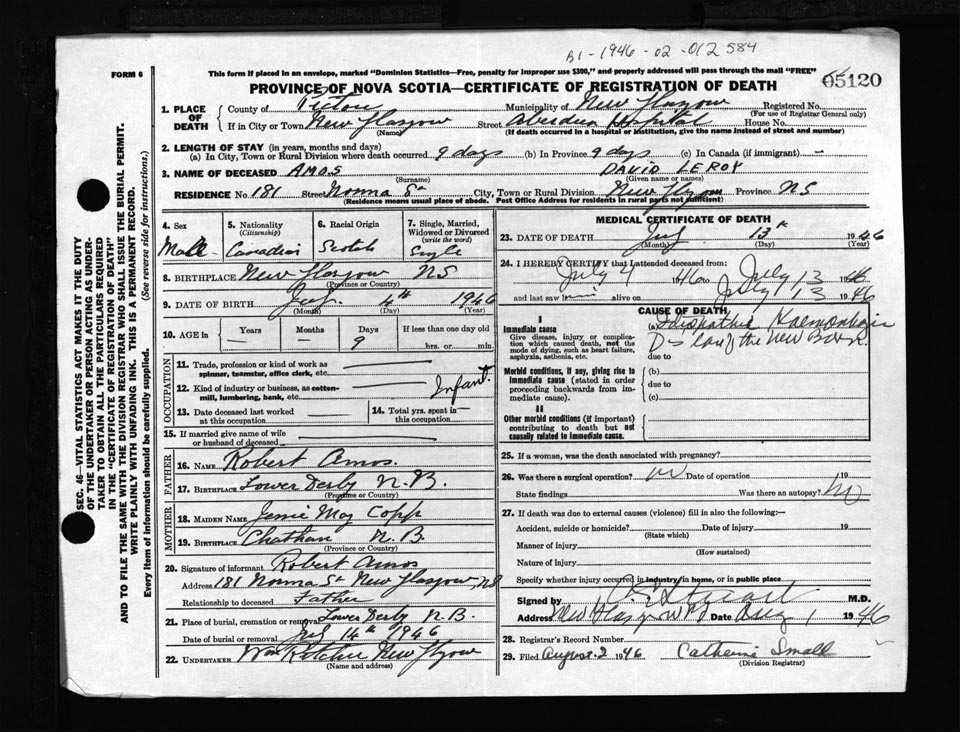 B1-1946-02-012584
FORM 6
This form if placed in an envelope, marked "Dominion Statistics—Free, penalty for improper use $300," and properly addressed will pass through the mail "FREE"
05120
PROVINCE OF NOVA SCOTIA—CERTIFICATE OF REGISTRATION OF DEATH
SEC. 46—VITAL STATISTICS ACT MAKES IT THE DUTY
OF THE UNDERTAKER OR PERSON ACTING AS UNDER-
TAKER TO OBTAIN ALL THE PARTICULARS REQUIRED
IN THE "CERTIFICATE OF REGISTRATION OF DEATH"
AND TO FILE THE SAME WITH THE DIVISION REGISTRAR WHO SHALL ISSUE THE BURIAL PERMIT.
WRITE PLAINLY WITH UNFADING INK. THIS IS A PERMANENT RECORD.
Every item of information should be carefully supplied. (See reverse side for instructions.)
1. PLACE OF DEATH
County of Pictou Municipality of New Glasgow Registered No.
(For use of Registrar General only)
If in City or Town New Glasgow Street Aberdeen Hospital House No.
(Name) (If death occurred in a hospital or institution, give the name instead of street and number)
2. LENGTH OF STAY (in years, months and days)
(a) In City, Town or Rural Division where death occurred 9 days (b) In Province 9 days (c) In Canada (if immigrant) —
3. NAME OF DECEASED AMOS DAVID LEROY
(Surname) (Given name or names)
RESIDENCE No. 181 Street Norma St City, Town or Rural Division New Glasgow Province NS
(Residence means usual place of abode. Post Office Address for residents in rural parts not sufficient)
4. Sex
Male
5. Nationality
(Citizenship)
Canadian
6. Racial Origin
Scotch
7. Single, Married,
Widowed or Divorced
(write the word)
Single
8. BIRTHPLACE New Glasgow NS
(Province or Country)
9. DATE OF BIRTH July 4th 1946
(Month) (Day) (Year)
10. AGE in Years Months Days If less than one day
— — 9 hrs. or min.
OCCUPATION
11. Trade, profession or kind of work as
spinner, teamster, office clerk, etc.
12. Kind of industry or business, as cotton-
mill, lumbering, bank, etc. Infant.
13. Date deceased last worked
at this occupation
14. Total yrs. spent in
this occupation
15. If married give name of wife
or husband of deceased
FATHER
16. NAME Robert Amos.
17. BIRTHPLACE Lower Derby N.B.
(Province or Country)
MOTHER
18. MAIDEN NAME Jennie May Copp
19. BIRTHPLACE Chatham N.B.
(Province or Country)
20. Signature of informant Robert Amos
Address 181 Norma St New Glasgow, NS
Relationship to deceased Father
21. Place of burial, cremation or removal Lower Derby N.B.
Date of burial or removal July 14th 1946
22. UNDERTAKER Wm Ritchie New Glasgow
(Name and address)
MEDICAL CERTIFICATE OF DEATH
23. DATE OF DEATH July 13th 1946
(Month) (Day) (Year)
24. I HEREBY CERTIFY that I attended deceased from:
July 4 46 to July 13 1946
and last saw him alive on July 13 1946
CAUSE OF DEATH
I
Immediate cause
Give disease, injury or compli-
cation which caused death, not the
mode of dying, such as heart failure,
asphyxia, asthenia, etc.
(a) Idiopathic
of the New Born.
due to
Morbid conditions, if any, giving rise to
immediate cause (stated in order
proceeding backwards from im-
mediate cause).
(b)
due to
(c)
II
Other morbid conditions (if important)
contributing to death but not
causally related to immediate cause.
25. If a woman, was the death associated with pregnancy?
26. Was there a surgical operation? no Date of operation 19
State findings Was there an autopsy? no
27. If death was due to external causes (violence) fill in also the following:—
Accident, suicide or homicide? Date of injury 19
(State which)
Manner of injury
(How sustained)
Nature of injury
Specify whether injury occurred in industry, in home, or in public place
Signed by M.D.
Address New Glasgow Date Aug 1 1946
28. Registrar's Record Number
29. Filed August 2 1946 Catherine Small
(Division Registrar)